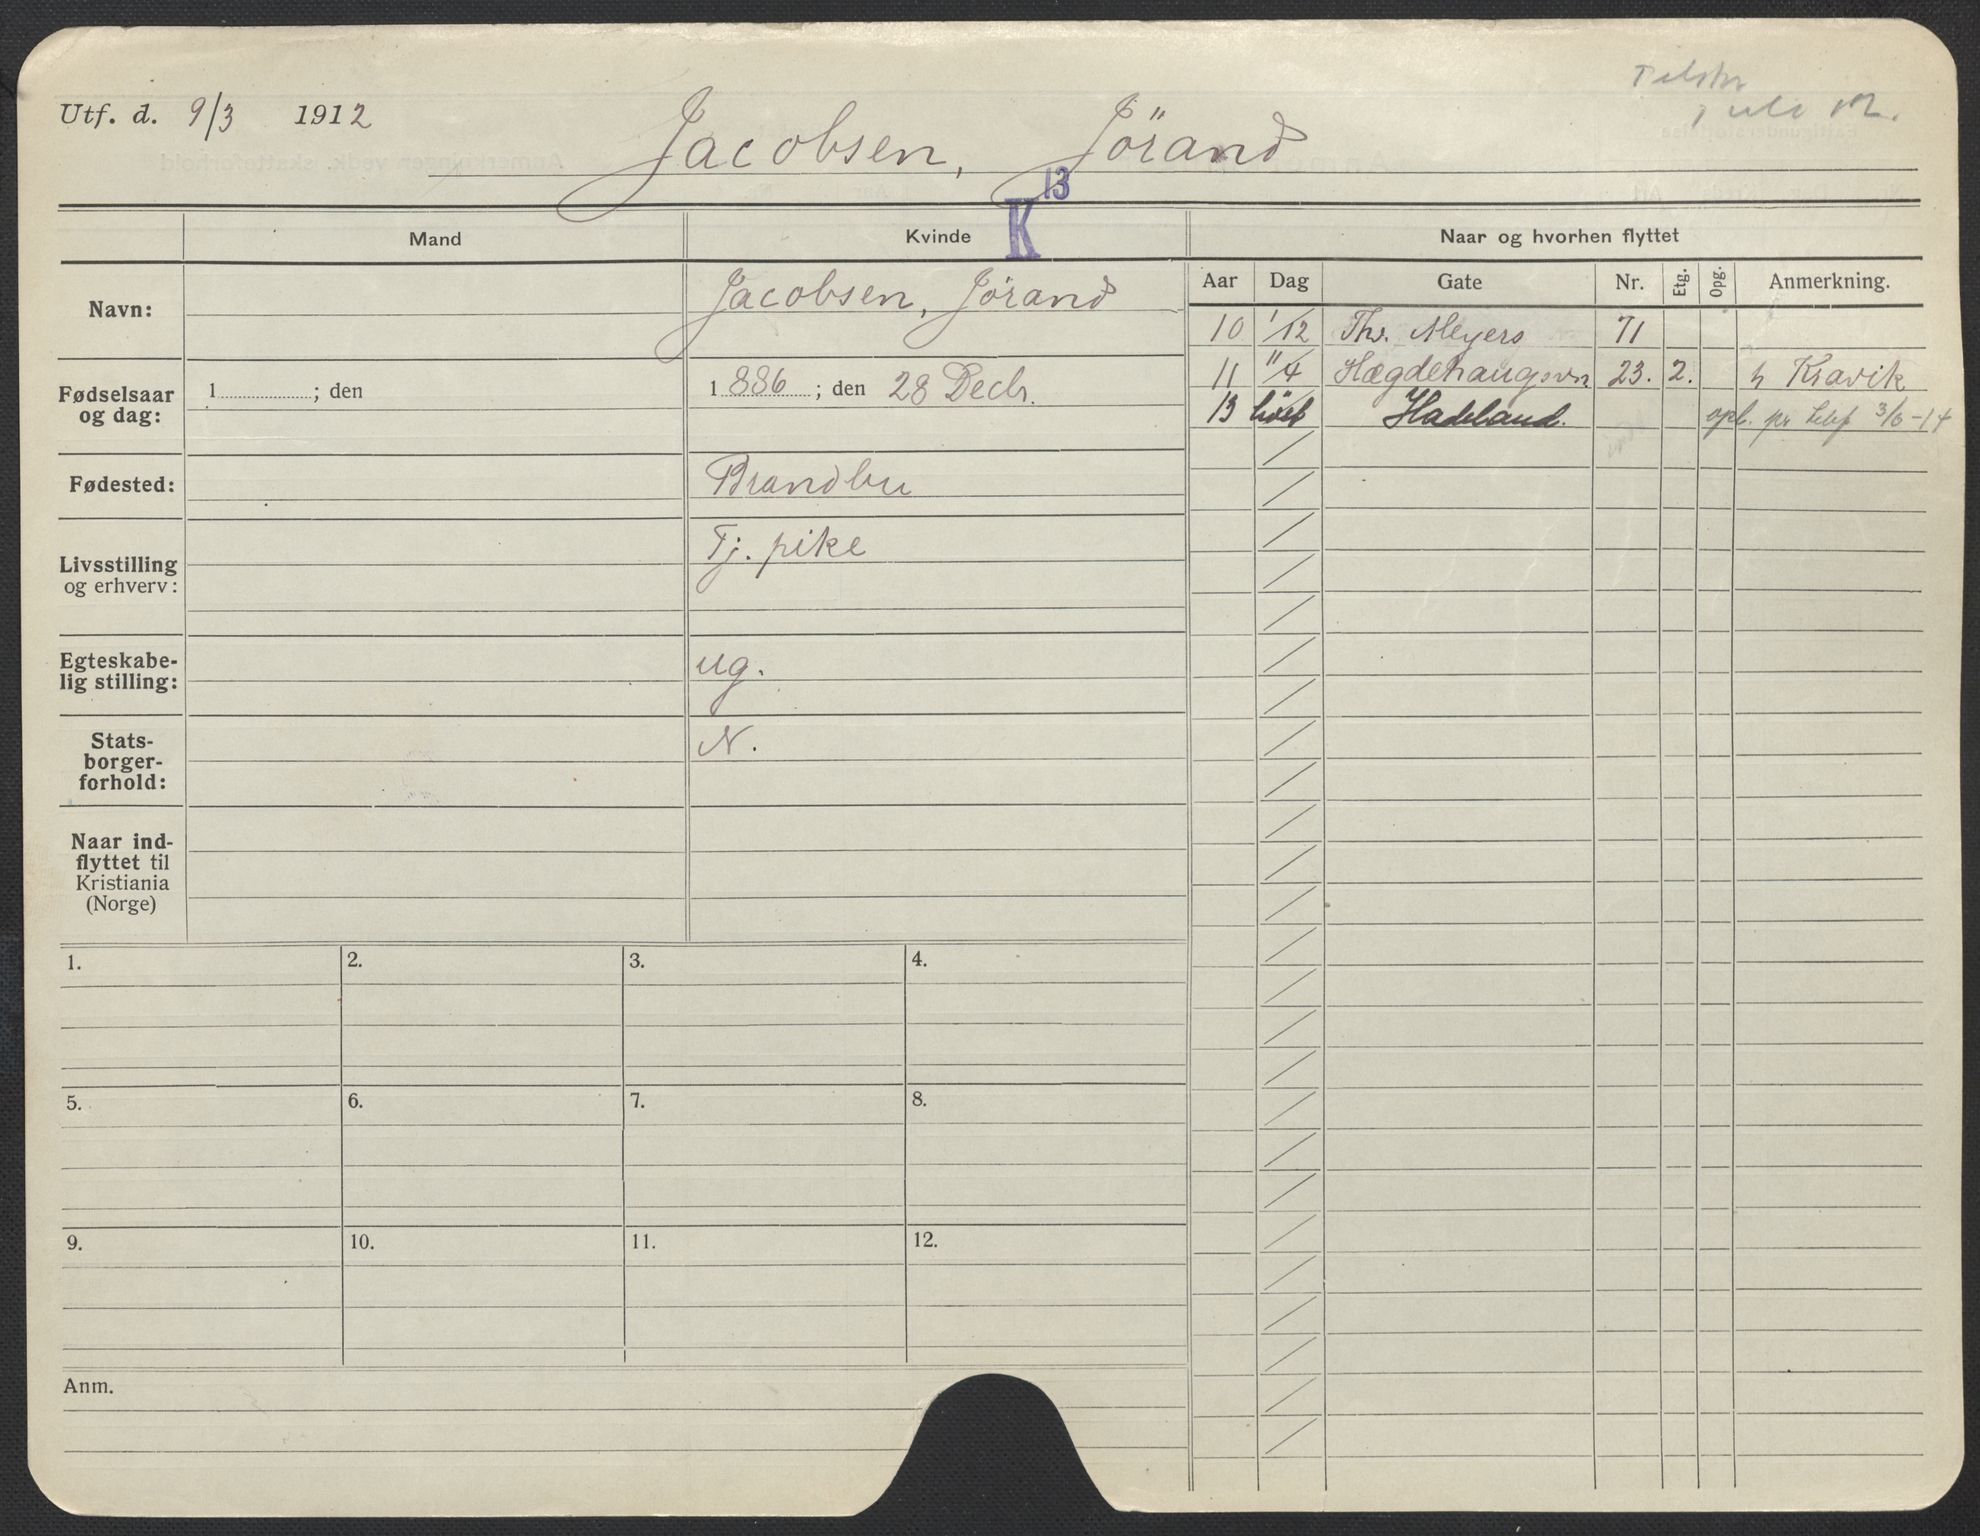 Utf. d. 9/3 1912
Jacobsen, Jörand
Juli 12.
K 13
Mand
Kvinde
Naar og hvorhen flyttet
Navn:
Jacobsen, Jörand
Fødselsaar og dag:
1 ; den
1886 ; den 28 Decbr.
Fødested:
Brandbu
Livsstilling og erhverv:
Tj. pike
Egteskabe-
lig stilling:
ug.
Stats-
borger-
forhold:
N.
Naar ind-
flyttet til
Kristiania
(Norge)
Aar Dag Gate Nr. Etg. Opg. Anmerkning.
10 1/12 Thv. Meyers 71
11 11/4 Hægdehaugsvn 23. 2. h Kravik
13 höst Hadeland. opl. pr 3/6-14
1. 2. 3. 4.
5. 6. 7. 8.
9. 10. 11. 12.
Anm.